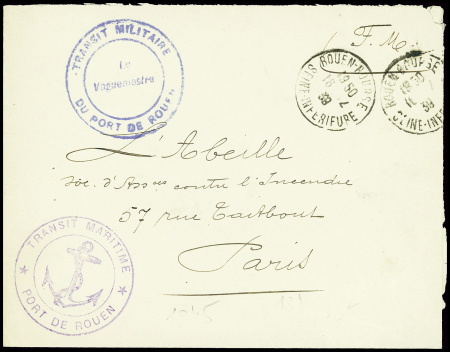 F. M.
TRANSIT MILITAIRE
Le
Vaguemestre
DU PORT DE ROUEN
ROUEN-BOURSE
18 50
SEINE-INFERIEURE
ROUEN-BOURSE
18 50
SEINE-INF
L'Abeille
Soc. d'Assces contre l'Incendie
57 rue Taitbout
Paris
TRANSIT MARITIME
PORT DE ROUEN